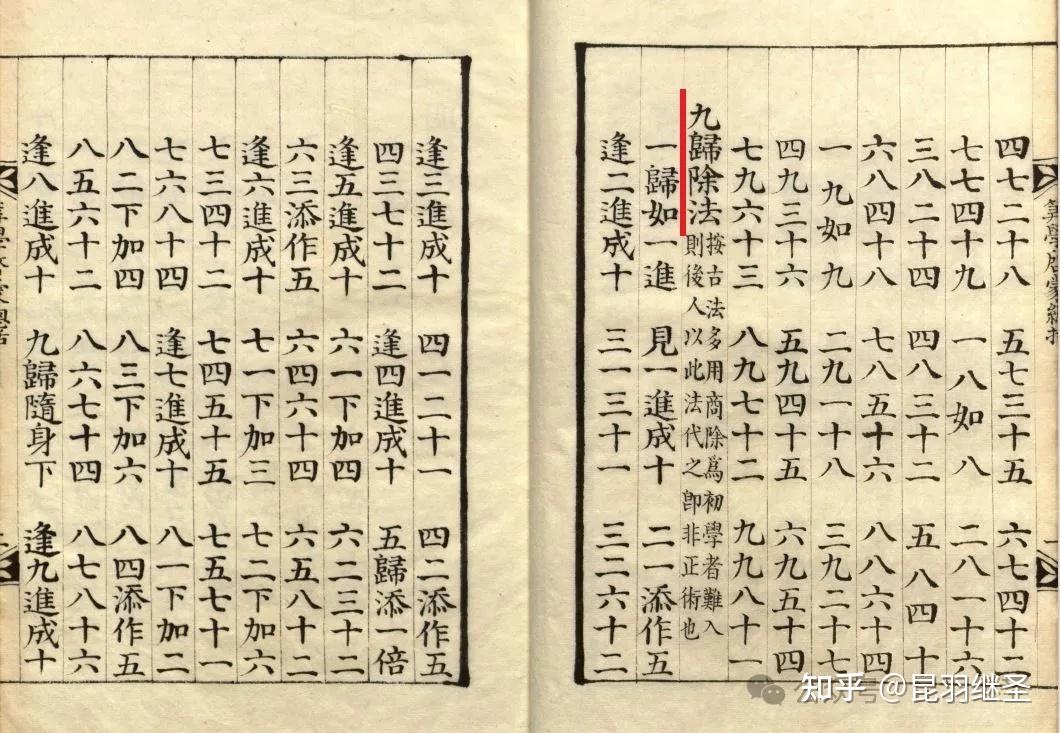 四七二十八 五七三十五 六七四十二
七七四十九 一八如八 二八一十六
三八二十四 四八三十二 五八四十
六八四十八 七八五十六 八八六十四
一九如九 二九一十八 三九二十七
四九三十六 五九四十五 六九五十四
七九六十三 八九七十二 九九八十一
九歸除法
按古法多用商除爲初學者難入
則後人以此法代之卽非正術也
一歸如一進 見一進成十 二一添作五
逢二進成十 三一三十一 三二六十二
逢三進成十 四一二十一 四二添作五
四三七十二 逢四進成十 五歸添一倍
逢五進成十 六一下加四 六二三十二
六三添作五 六四六十四 六五八十二
逢六進成十 七一下加三 七二下加六
七三四十二 七四五十五 七五七十一
七六八十四 逢七進成十 八一下加二
八二下加四 八三下加六 八四添作五
八五六十二 八六七十四 八七八十六
逢八進成十 九歸隨身下 逢九進成十
知乎 @昆羽继圣